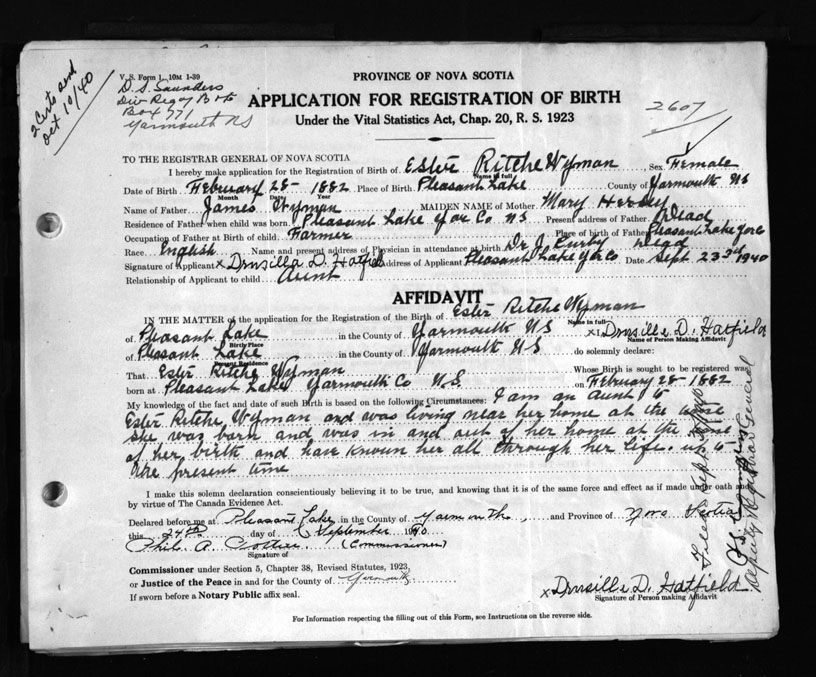 V. S. Form 1, 10M 1-39
PROVINCE OF NOVA SCOTIA
2 Certs and
Oct 10/40
D. S. Saunders
Div Reg of B
Box 771
Yarmouth NS
APPLICATION FOR REGISTRATION OF BIRTH
2607
Under the Vital Statistics Act, Chap. 20, R. S. 1923
TO THE REGISTRAR GENERAL OF NOVA SCOTIA
I hereby make application for Registration of Birth of Ester Ritche Wyman Sex Female
Name in full
Date of Birth February 28- 1882 Place of Birth Pleasant Lake County of Yarmouth NS
Month Date Year
Name of Father James Wyman MAIDEN NAME of Mother Mary Hersey
Residence of Father when child was born Pleasant Lake Yar Co NS Present address of Father Dead
Occupation of Father at Birth of child Farmer Place of birth of Father Pleasant Lake Yar Co
Race English Name and present address of Physician in attendance at birth Dr J. Dead
Signature of Applicant x Drusilla D. Hatfield Address of Applicant Pleasant Lake Yar Co Date Sept 23rd 1940
Relationship of Applicant to child Aunt
AFFIDAVIT
IN THE MATTER of the application for the Registration of the Birth of Ester Ritche Wyman
Name in full
of Pleasant Lake in the County of Yarmouth NS x I, Drusille D. Hatfield
Birth Place Name of Person Making Affidavit
of Pleasant Lake in the County of Yarmouth NS do solemnly declare:
Present Residence
That Ester Ritche Wyman Whose Birth is sought to be registered was
born at Pleasant Lake Yarmouth Co N.S. on February 28-1882
My knowledge of the fact and date of such Birth is based on the following Circumstances: I am an Aunt to
Ester Ritche Wyman and was living near her home at the time
she was born and was in and out of her home at the time
of her birth and have known her all through her life. up to
the present time
I make this solemn declaration conscientiously believing it to be true, and knowing that it is of the same force and effect as if made under oath and
by virtue of The Canada Evidence Act.
Declared before me at Pleasant Lake in the County of Yarmouth, and Province of Nova Scotia
this 24th day of September 1940
Philo. A. (Commissioner)
Signature of
Commissioner under Section 5, Chapter 38, Revised Statutes, 1923,
or Justice of the Peace in and for the County of Yarmouth
If sworn before a Notary Public affix seal.
x Drusille D. Hatfield
Signature of Person making Affidavit
For Information respecting the filling out of this Form, see Instructions on the reverse side.
Filed Sept 30/40
Deputy Registrar General